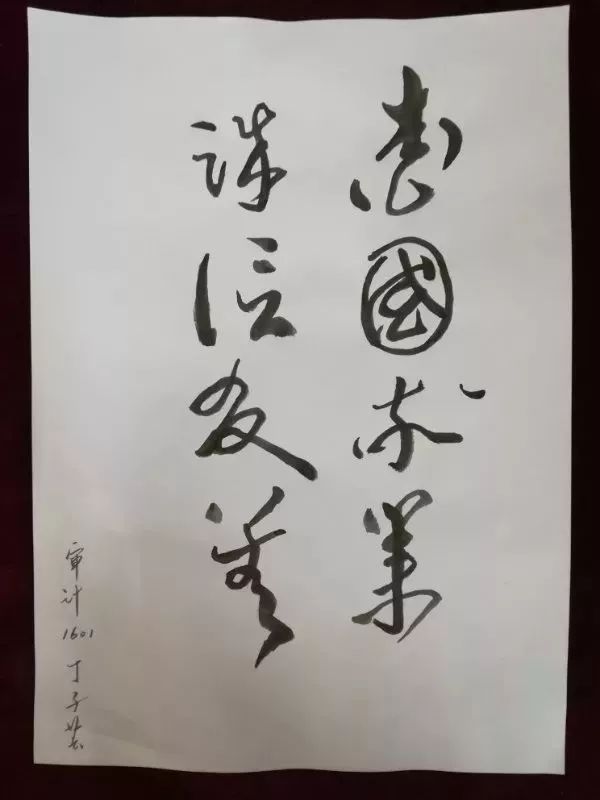 爱國敬業
诚信友善
审计1601 丁子芸